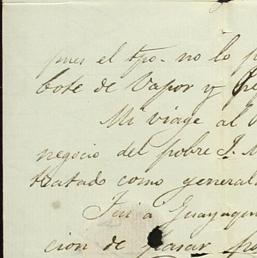 pues el tpo. no lo p
bote de Vapor y he
Mi viage al
negocio del pobre J. M
tratado como general
Fui a Guayaqu
cion de pasar pa